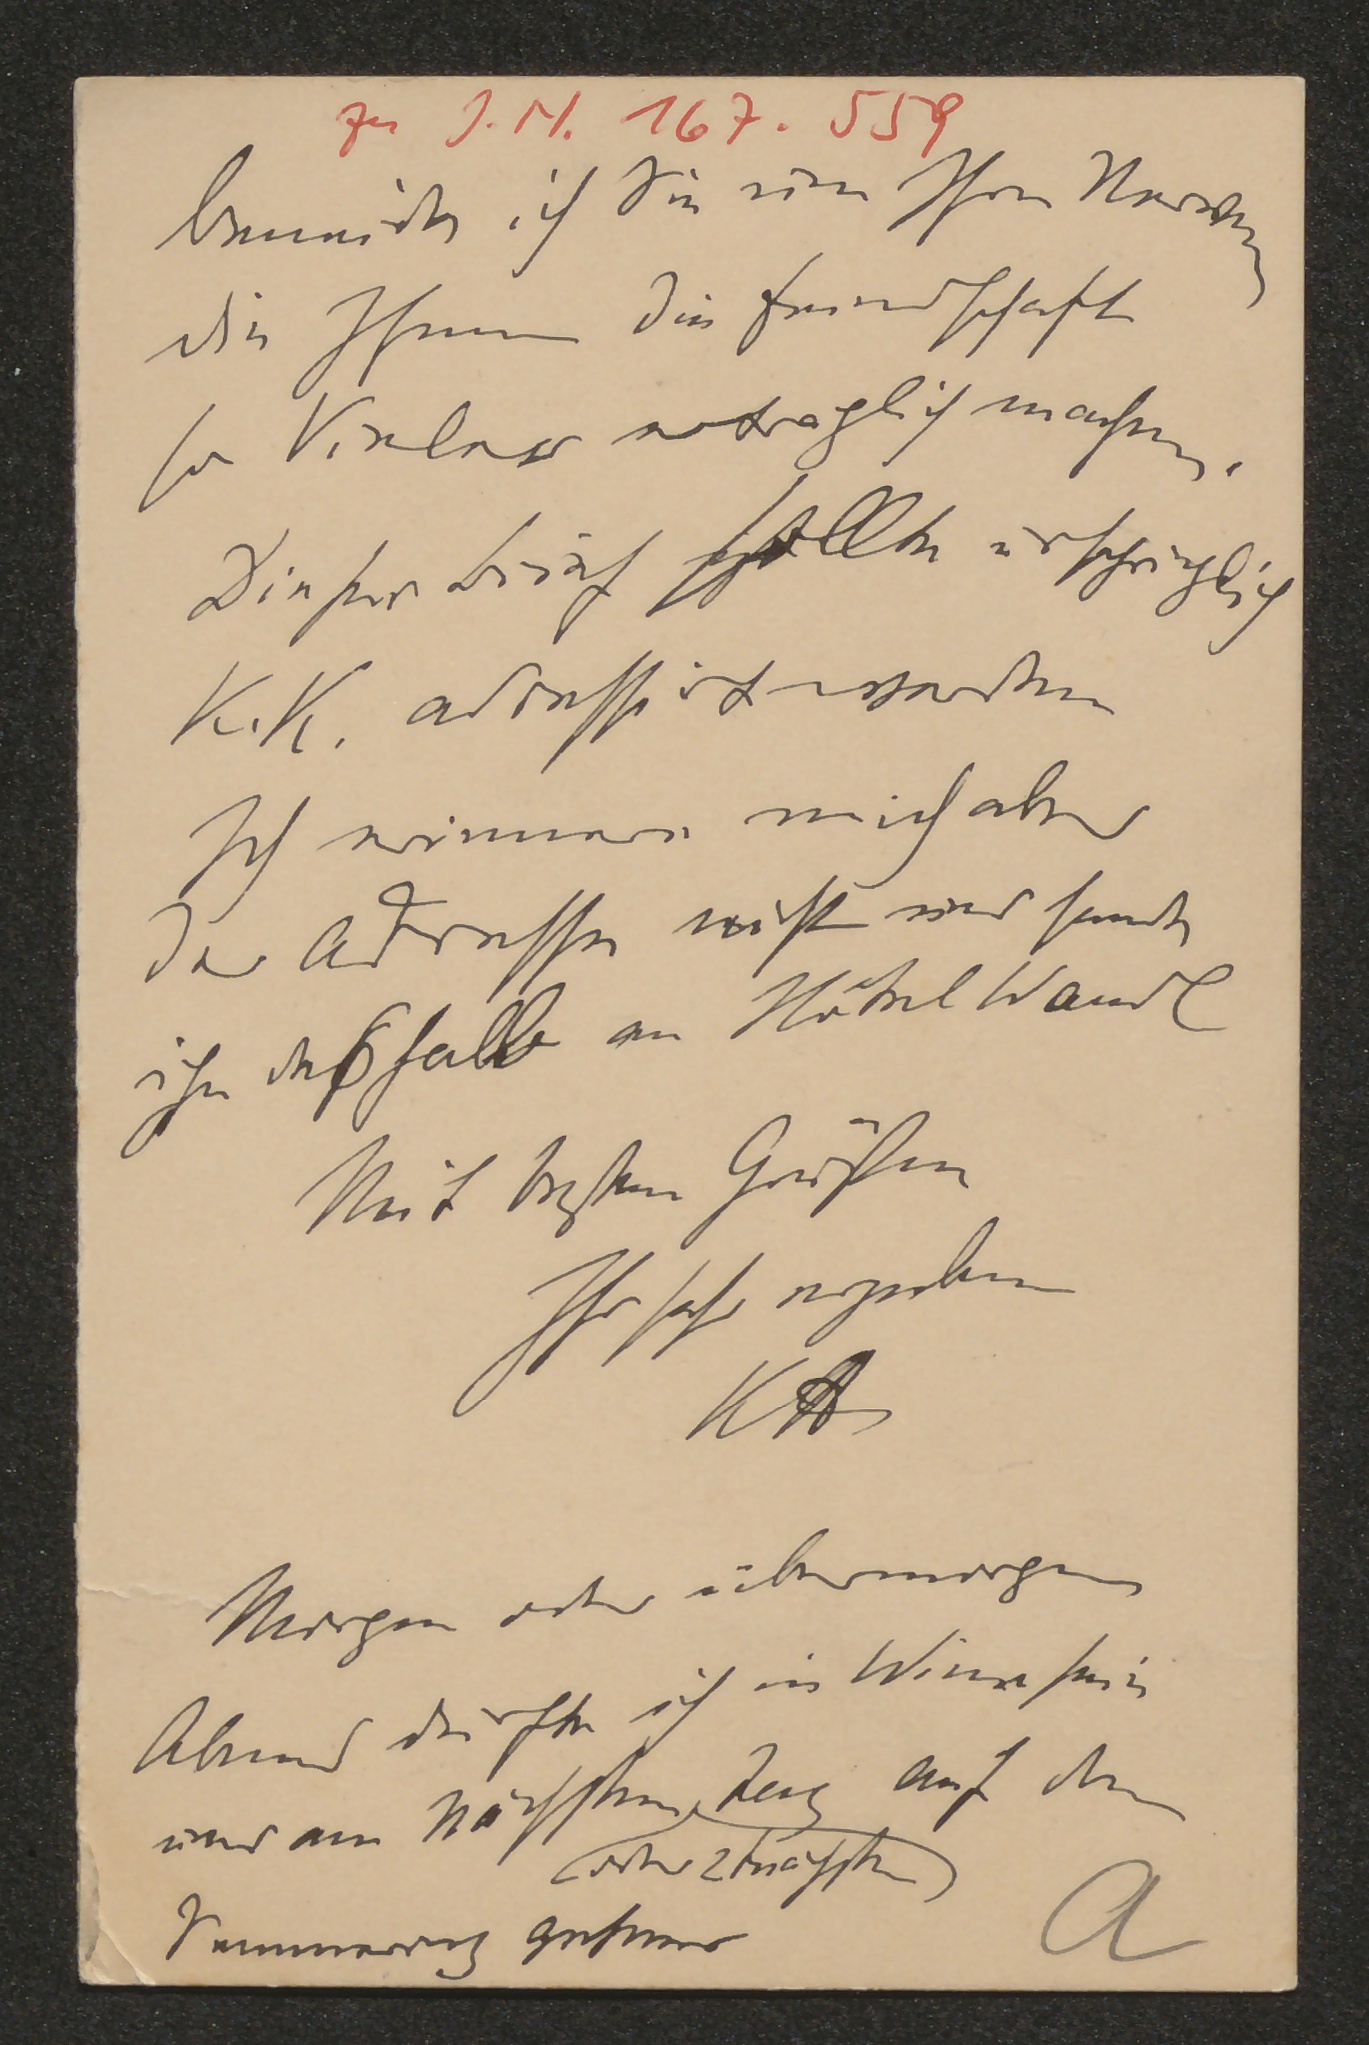 zu J.N. 167.559
beneide ich Sie um Ihre Nerven
die Ihnen die Freundschaft
so Vieler erträglich machen.
Dieser Brief sollte ursprünglich
K.K. adressirt werden
Ich erinnere mich aber
der Adresse nicht und sende
ihn deßhalb an Hôtel Wandl
Mit besten Grüßen
Ihr sehr ergebener
Morgen oder übermorgen
Abend dürfte ich in Wien sein
und am nächsten Tag auf den
(oder 2tnächsten)
Semmering gehen
A